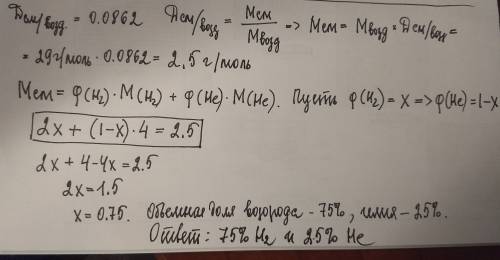 Dсм/возд. = 0.0862 Dсм/возд = Mсм/Mвозд => Mсм = Mвозд · Dсм/возд =
= 29г/моль · 0.0862 = 2,5 г/моль
Mсм = φ(H₂) · M(H₂) + φ(He) · M(He). Пусть φ(H₂) = x => φ(He) = 1-x
2x + (1-x) · 4 = 2.5
2x + 4 - 4x = 2.5
2x = 1.5
x = 0.75. Объемная доля водорода - 75%, гелия - 25%.
Ответ: 75% H₂ и 25% He